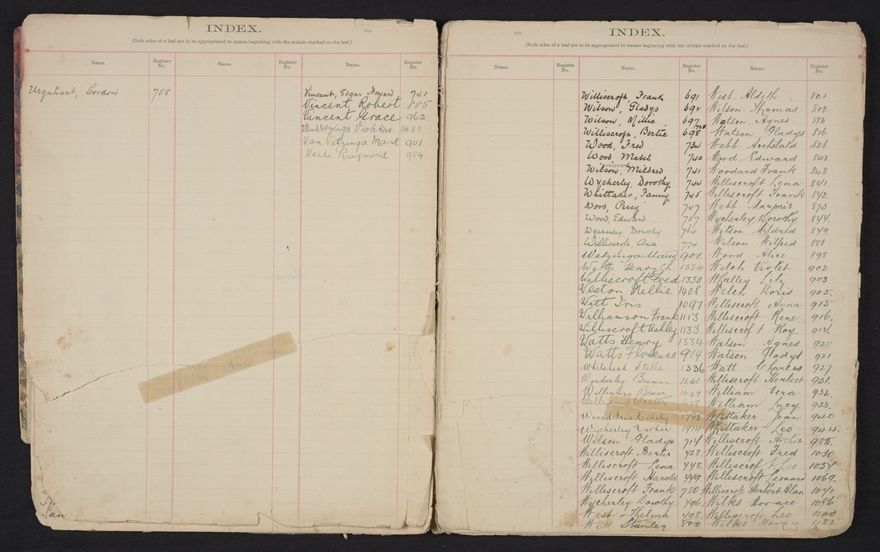 INDEX.
(Both sides of a leaf are to be appropriated to names beginning with the initials marked on the leaf.)
Name. Register No. Name. Register No. Name. Register No.
Urquhart, Gordon 758
Vincent, Edgar Howard 741
Vincent Robert 885
Vincent Grace 962
Van Vetzinga Maud 901
Veale Raymond 984
INDEX.
(Both sides of a leaf are to be appropriated to names beginning with the initials marked on the leaf.)
Name. Register No. Name. Register No. Name. Register No.
Williscroft, Frank 691 West Aldyth 801
Wilson, Gladys 692 Wilson Thomas 802
Wilson, Millie 697 Watson Agnes
Williscroft, Bertie 698 Watson Gladys 816
Wood, Fred 734 Webb Archibald 826
Wood, Mabel 740 Wood Edward
Wilson, Mildred 741 Woodard Frank 848
Wycherley, Dorothy 744 Williscroft Lena 841
Whittaker, Fanny 745 Williscroft Frank 842
Wood, Percy 747 Webb Marjorie 873
Wood, Edward 757 Wycherley Dorothy 844
Wycherley Dorothy Wilson Mildred 849
Williscroft, Ana 774 Wilson Wilfred 881
Wetzinga 901 Wood Alice 898
Watts Henry Ch. 1334 Welch Violet 902
Williscroft Fred 1330 Whalley 903
Weston Nellie 1408 Welch Doris 905
Watt Iris 1097 Williscroft 915
Williamson Frank 1113 Williscroft Rene 916
Williscroft Ashley 1133 Williscroft Roy 914
Watts Henry 1334 Watson Agnes 920
Watts Florence 914 Watson Gladys 921
Whitehead Stella 1336 Watt Charles 927
Wycherley 1601 Williscroft Herbert 931
Williams Bruce William Vera 932
Walter William Lucy 933
Wood Whittaker Jean 940
Wycherley Esther Whittaker Leo 944
Wilson Gladys 714 Williscroft Archie 985
Williscroft Bertie 428 Williscroft Fred 1030
Williscroft Lena 448 Williscroft Leo 1054
Williscroft Harold 449 Williscroft Leonard 1069
Williscroft Frank 750 Williscroft Herbert Alan
Wycherley Dorothy 496 Wilks Horace 1086
West Thelma 498 Williscroft Leo 1100
Stanley 800 Wilks